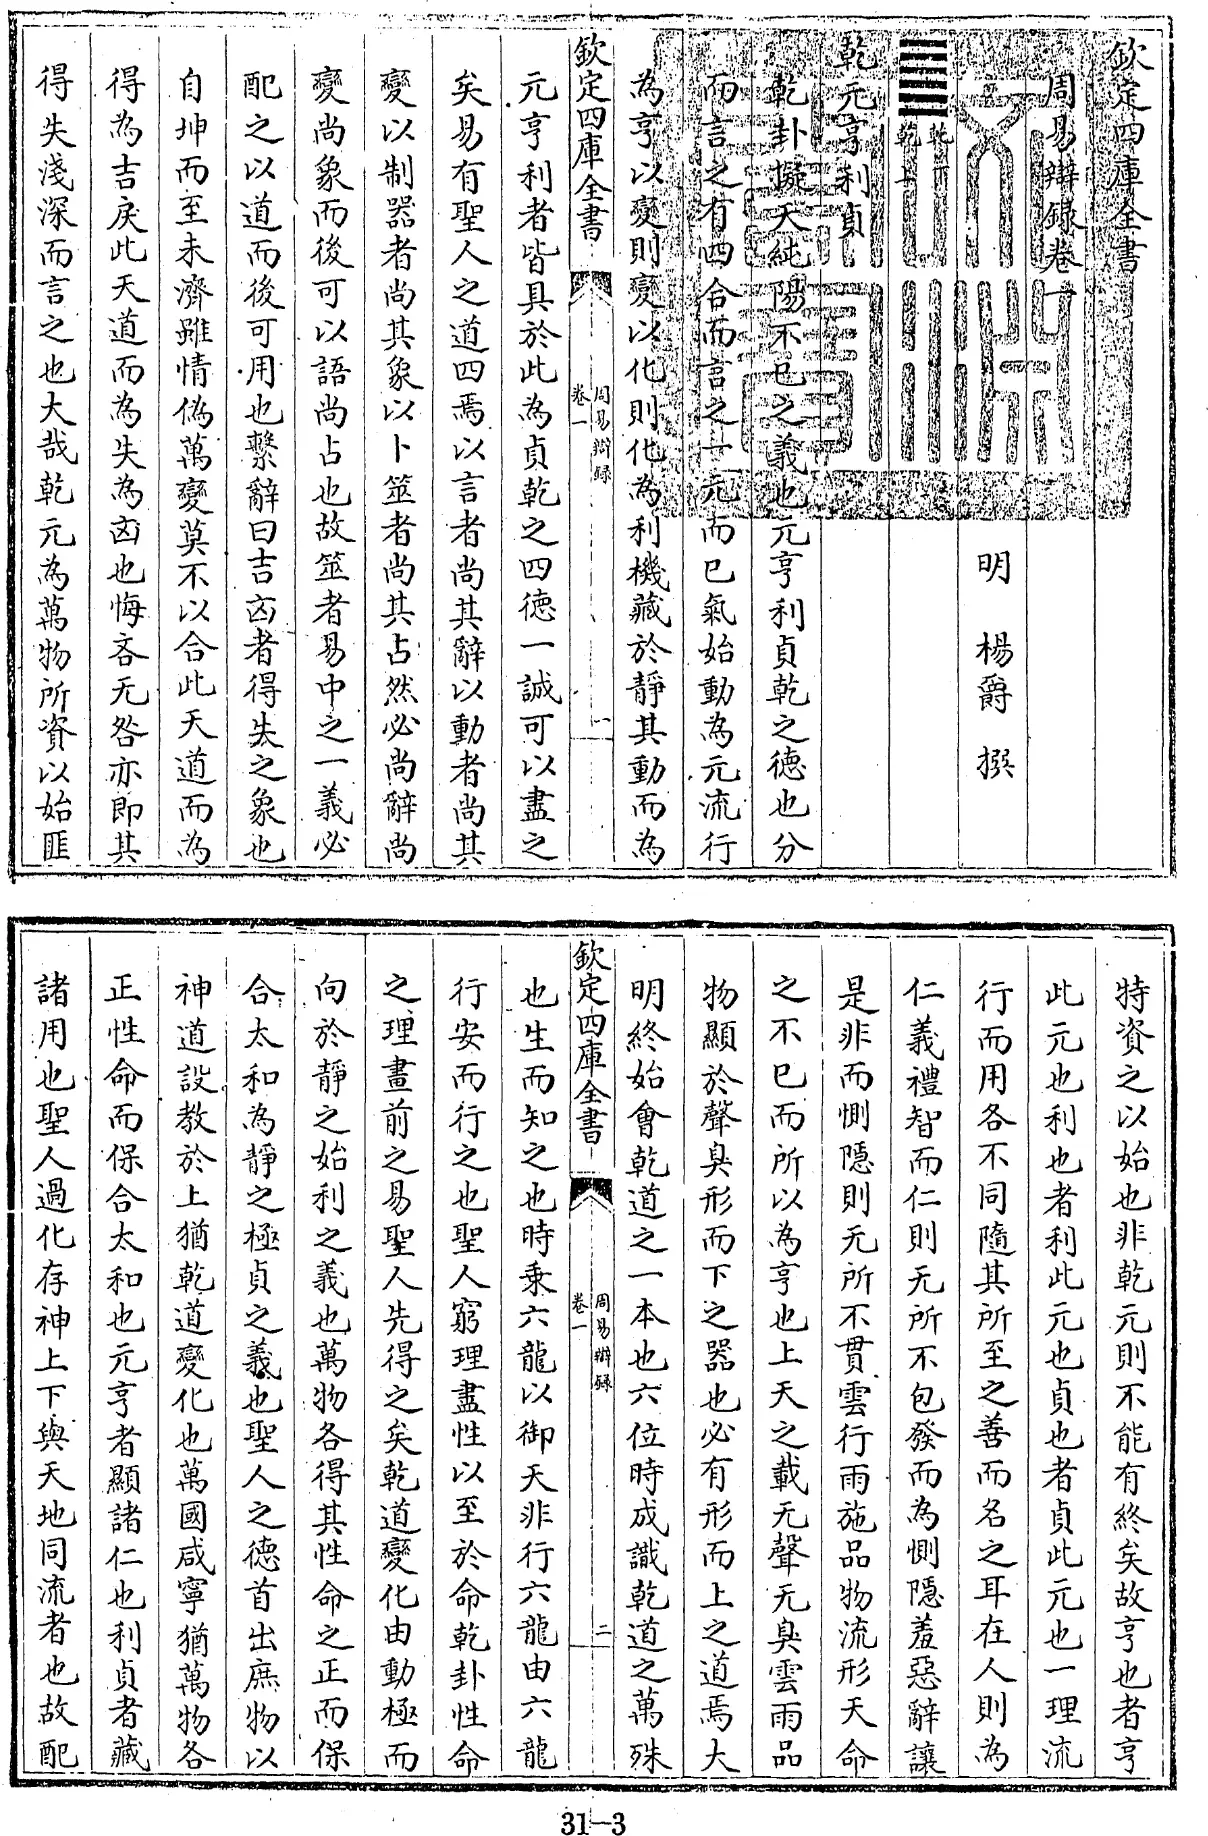 欽定四庫全書
周易辯錄卷一
明 楊爵 撰
乾下
乾上
乾元亨利貞
乾卦擬天純陽不已之義也元亨利貞乾之德也分
而言之有四合而言之一元而已氣始動為元流行
為亨以變則變以化則化為利機藏於靜其動而為
欽定四庫全書
周易辯錄
卷一
一
元亨利者皆具於此為貞乾之四德一誠可以盡之
矣易有聖人之道四焉以言者尚其辭以動者尚其
變以制器者尚其象以卜筮者尚其占然必尚辭尚
變尚象而後可以語尚占也故筮者易中之一義必
配之以道而後可用也繫辭曰吉凶者得失之象也
自坤而至未濟雖情偽萬變莫不以合此天道而為
得為吉戾此天道而為失為凶也悔吝无咎亦即其
得失淺深而言之也大哉乾元為萬物所資以始匪
特資之以始也非乾元則不能有終矣故亨也者亨
此元也利也者利此元也貞也者貞此元也一理流
行而用各不同隨其所至之善而名之耳在人則為
仁義禮智而仁則无所不包發而為惻隱羞惡辭讓
是非而惻隱則无所不貫雲行雨施品物流形天命
之不已而所以為亨也上天之載无聲无臭雲雨品
物顯於聲臭形而下之器也必有形而上之道焉大
明終始會乾道之一本也六位時成識乾道之萬殊
欽定四庫全書
周易辯錄
卷一
二
也生而知之也時乘六龍以御天非行六龍由六龍
行安而行之也聖人窮理盡性以至於命乾卦性命
之理畫前之易聖人先得之矣乾道變化由動極而
向於靜之始利之義也萬物各得其性命之正而保
合太和為靜之極貞之義也聖人之德首出庶物以
神道設教於上猶乾道變化也萬國咸寧猶萬物各
正性命而保合太和也元亨者顯諸仁也利貞者藏
諸用也聖人過化存神上下與天地同流者也故配
31-3